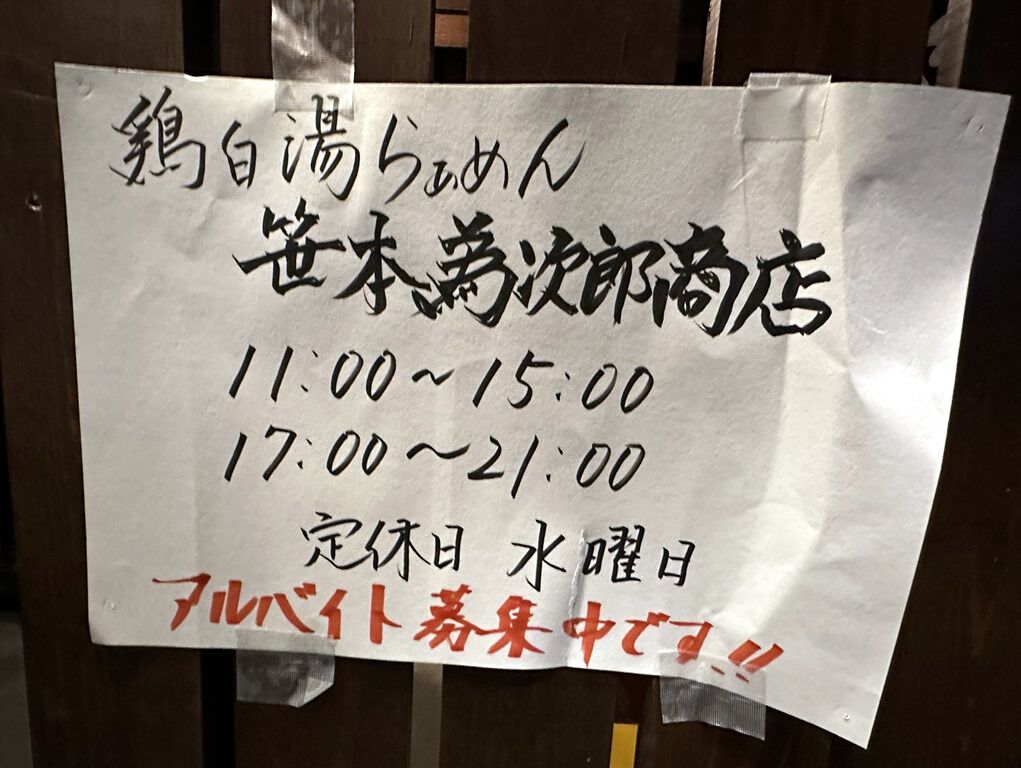 鶏白湯らぁめん
笹本為次郎商店
11:00～15:00
17:00～21:00
定休日 水曜日
アルバイト募集中です!!